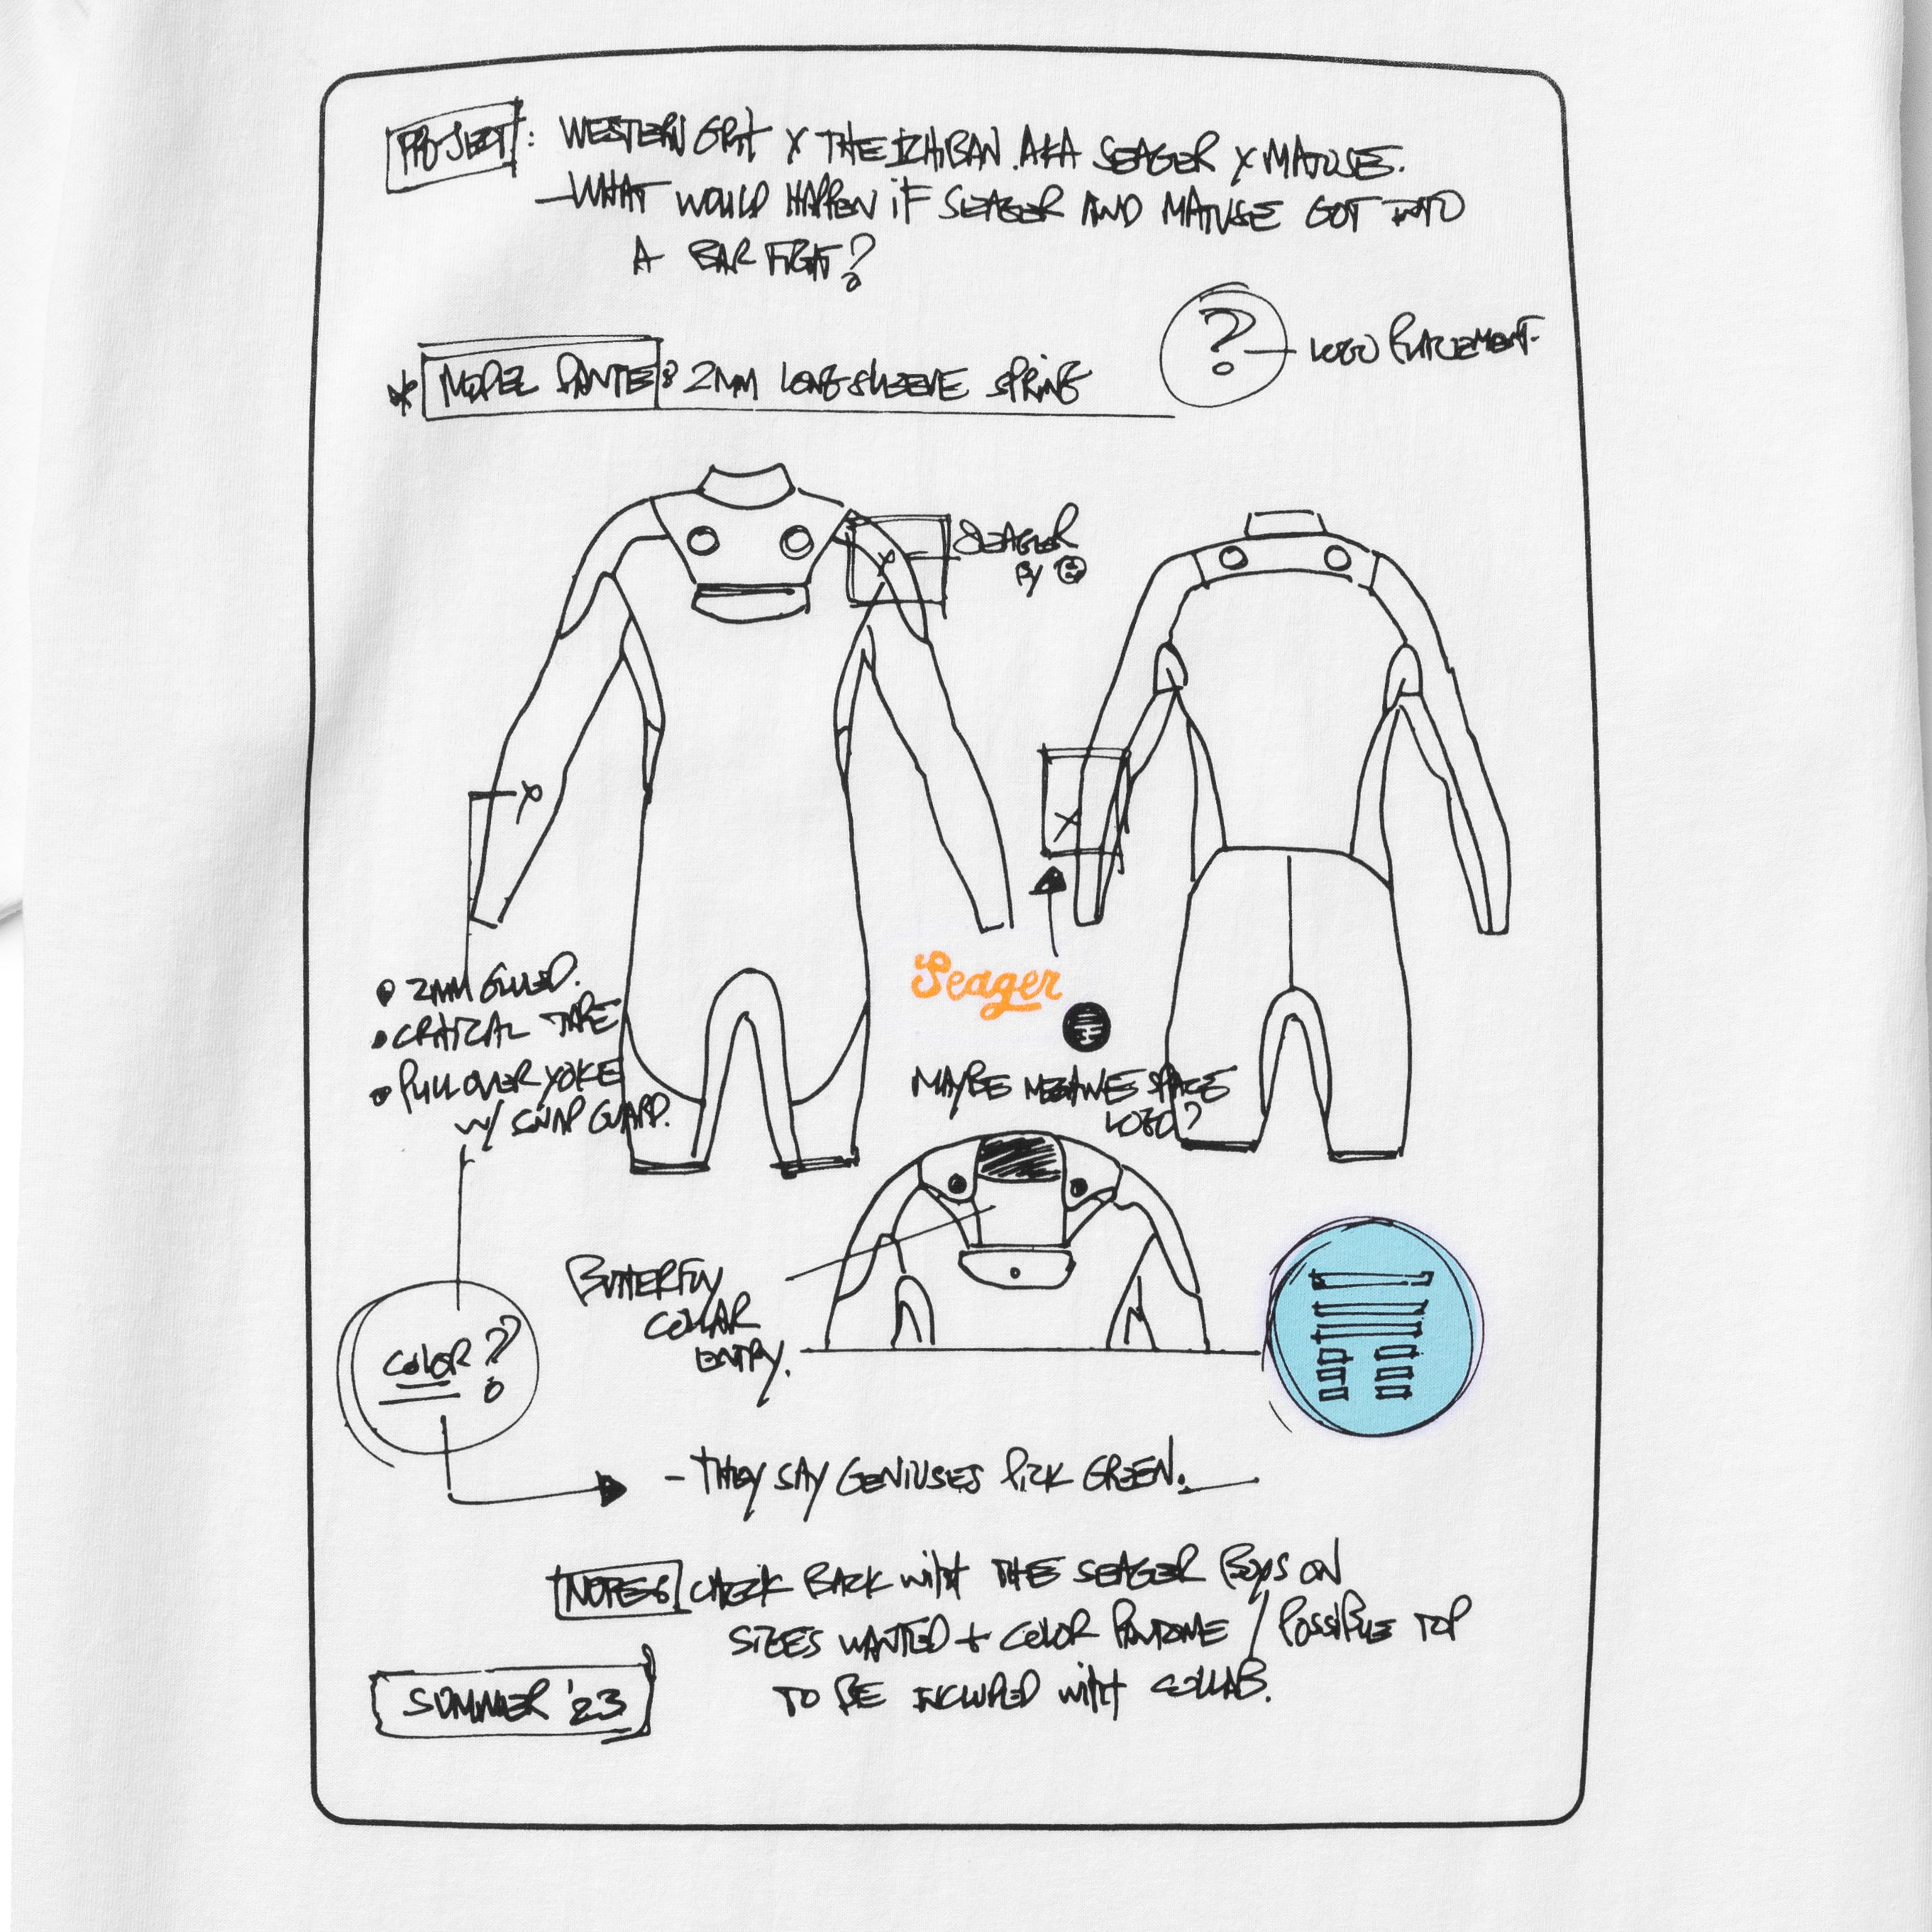 PROJECT: WESTERN GRIT X THE ICHIBAN. AKA SEAGER X MATUSE.
- WHAT WOULD HAPPEN IF SEAGER AND MATUSE GOT INTO
A BAR FIGHT?
? - LOGO PLACEMENT.
* MODEL DANTE: 2MM LONGSLEEVE SPRING
SEAGER
BY
X
X
X
• 2MM GLUED.
• CRITICAL TAPE
• PULLOVER YOKE
W/ SNAP GUARD.
Seager
MAYBE SPACE
LOGO?
BUTTERFLY
COLLAR
ENTRY.
COLOR?
- THEY SAY GENIUSES PICK GREEN.
NOTES CHECK BACK WITH THE SEAGER BOYS ON
SIZES WANTED + COLOR PANTONE / POSSIBLE TOP
TO BE INCLUDED WITH COLLAB.
SUMMER '23